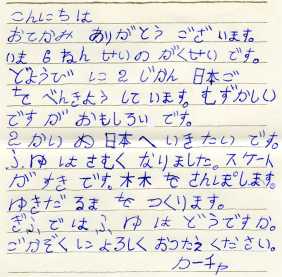 こんにちは
おてがみ ありがとう ございます。
いま 6 ねん せいの がくせい です。
どようび に 2 じかん 日本ご
を べんきよう しています。 むずかしい
ですが おもしろい です。
2 かい め 日本 へ いきたい です。
ふゆ は さむく なりました。 スケート
が すき です。 木木 を さんぽします。
ゆきだるま を つくります。
ぎふ では ふゆ は どうですか。
ごかぞく に よろしく おつたえ ください。
カーチャ